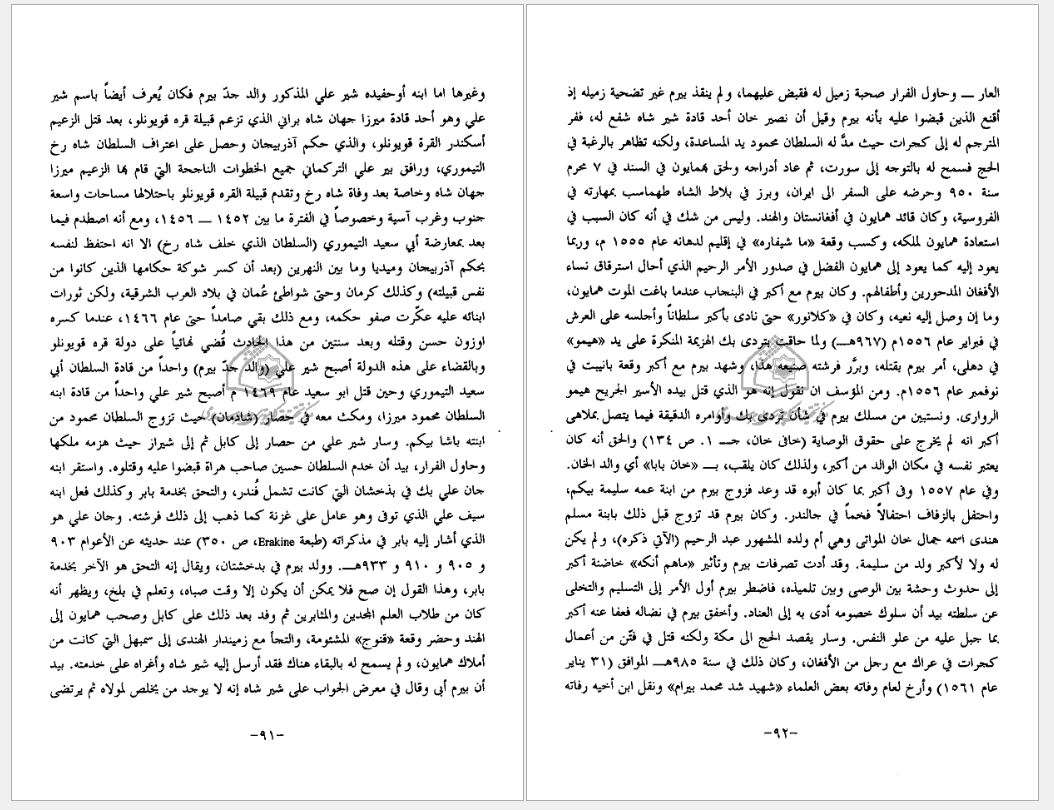 وغيرها اما ابنه أوحفيده شير علي المذكور والد جدّ بيرم فكان يُعرف أيضاً باسم شير
علي وهو أحد قادة ميرزا جهان شاه براني الذي تزعم قبيلة قره قويونلو، بعد قتل الزعيم
أسكندر القرة قويونلو، والذي حكم آذربيجان وحصل على اعتراف السلطان شاه رخ
التيموري، ورافق بير علي التركماني جميع الخطوات الناجحة التي قام بها الزعيم ميرزا
جهان شاه وخاصة بعد وفاة شاه رخ وتقدم قبيلة القره قويونلو باحتلالها مساحات واسعة
جنوب وغرب آسية وخصوصاً في الفترة ما بين ١٤٥٢ ــ ١٤٥٦، ومع أنه اصطدم فيما
بعد بمعارضة أبي سعيد التيموري (السلطان الذي خلف شاه رخ) الا انه احتفظ لنفسه
بحكم آذربيجان وميديا وما بين النهرين (بعد أن كسر شوكة حكامها الذين كانوا من
نفس قبيلته) وكذلك كرمان وحتى شواطئ عُمان في بلاد العرب الشرقية، ولكن ثورات
ابنائه عليه عكّرت صفو حكمه، ومع ذلك بقي صامداً حتى عام ١٤٦٦، عندما كسره
اوزون حسن وقتله وبعد سنتين من هذا الحادث قُضي نهائياً على دولة قره قويونلو
وبالقضاء على هذه الدولة أصبح شير علي (والد جدّ بيرم) واحداً من قادة السلطان أبي
سعيد التيموري وحين قتل ابو سعيد عام ١٤٦٩ م أصبح شير علي واحداً من قادة ابنه
السلطان محمود ميرزا، ومكث معه في حصار (شادمان) حيث تزوج السلطان محمود من
ابنته باشا بيكم. وسار شير علي من حصار إلى كابل ثم إلى شيراز حيث هزمه ملكها
وحاول الفرار، بيد أن خدم السلطان حسين صاحب هراة قبضوا عليه وقتلوه. واستقر ابنه
جان علي بك في بذخشان التي كانت تشمل قُندر، والتحق بخدمة بابر وكذلك فعل ابنه
سيف علي الذي توفى وهو عامل على غزنة كما ذهب إلى ذلك فرشته. وجان علي هو
الذي أشار إليه بابر في مذكراته (طبعة Erakine، ص ٣٥٠) عند حديثه عن الأعوام ٩٠٣
و ٩٠٥ و ٩١٠ و ٩٣٣هــ. وولد بيرم في بدخشتان، ويقال إنه التحق هو الآخر بخدمة
بابر، وهذا القول إن صح فلا يمكن أن يكون إلا وقت صباه، وتعلم في بلخ، ويظهر أنه
كان من طلاب العلم المجدين والمثابرين ثم وفد بعد ذلك على كابل وصحب همايون إلى
الهند وحضر وقعة «قنوج» المشئومة، والتجأ مع زميندار الهندى إلى سمبهل التي كانت من
أملاك همايون، ولم يسمح له بالبقاء هناك فقد أرسل إليه شير شاه وأغراه على خدمته. بيد
أن بيرم أبى وقال في معرض الجواب على شير شاه إنه لا يوجد من يخلص لمولاه ثم يرتضى
-٩١-
العار ــ وحاول الفرار صحبة زميل له فقبض عليهما، ولم ينقذ بيرم غير تضحية زميله إذ
أقنع الذين قبضوا عليه بأنه بيرم وقيل أن نصير خان أحد قادة شير شاه شفع له، ففر
المترجم له إلى كجرات حيث مدَّ له السلطان محمود يد المساعدة، ولكنه تظاهر بالرغبة في
الحج فسمح له بالتوجه إلى سورت، ثم عاد أدراجه ولحق بهمايون في السند في ٧ محرم
سنة ٩٥٠ وحرضه على السفر الى ايران، وبرز في بلاط الشاه طهماسب بمهارته في
الفروسية، وكان قائد همايون في أفغانستان والهند. وليس من شك في أنه كان السبب في
استعادة همايون لملكه، وكسب وقعة «ما شيفاره» في إقليم لدهانه عام ١٥٥٥ م، وربما
يعود إليه كما يعود إلى همايون الفضل في صدور الأمر الرحيم الذي أحال استرقاق نساء
الأفغان المدحورين وأطفالهم. وكان بيرم مع أكبر في البنجاب عندما باغت الموت همايون،
وما إن وصل إليه نعيه، وكان في «كلانور» حتى نادى بأكبر سلطاناً وأجلسه على العرش
في فبراير عام ١٥٥٦م (٩٦٧هــ) ولما حاقت بتردى بك الهزيمة المنكرة على يد «هيمو»
في دهلى، أمر بيرم بقتله، وبرَّر فرشته صنيعه هذا، وشهد بيرم مع أكبر وقعة بانيبت في
نوفمبر عام ١٥٥٦م. ومن المؤسف ان نقول إنه هو الذي قتل بيده الأسير الجريح هيمو
الروارى. ونستبين من مسلك بيرم في شأن تردى بك وأوامره الدقيقة فيما يتصل بملاهى
أكبر انه لم يخرج على حقوق الوصاية (خافى خان، جــ ١. ص ١٣٤) والحق أنه كان
يعتبر نفسه في مكان الوالد من أكبر، ولذلك كان يلقب، بــ «خان بابا» أي والد الخان.
وفي عام ١٥٥٧ وفى أكبر بما كان أبوه قد وعد فزوج بيرم من ابنة عمه سليمة بيكم،
واحتفل بالزفاف احتفالاً فخماً في جالندر. وكان بيرم قد تزوج قبل ذلك بابنة مسلم
هندى اسمه جمال خان المواتى وهي أم ولده المشهور عبد الرحيم (الآتي ذكره)، ولم يكن
له ولا لأكبر ولد من سليمة. وقد أدت تصرفات بيرم وتأثير «ماهم أنكه» حاضنة أكبر
إلى حدوث وحشة بين الوصى وبين تلميذه، فاضطر بيرم أول الأمر إلى التسليم والتخلى
عن سلطته بيد أن سلوك خصومه أدى به إلى العناد. وأخفق بيرم في نضاله فعفا عنه أكبر
بما جبل عليه من علو النفس. وسار يقصد الحج الى مكة ولكنه قتل في فتّن من أعمال
كجرات في عراك مع رجل من الأفغان، وكان ذلك في سنة ٩٨٥هــ الموافق (٣١ يناير
عام ١٥٦١) وأرخ لعام وفاته بعض العلماء «شهيد شد محمد بيرام» ونقل ابن أخيه رفاته
-٩٢-